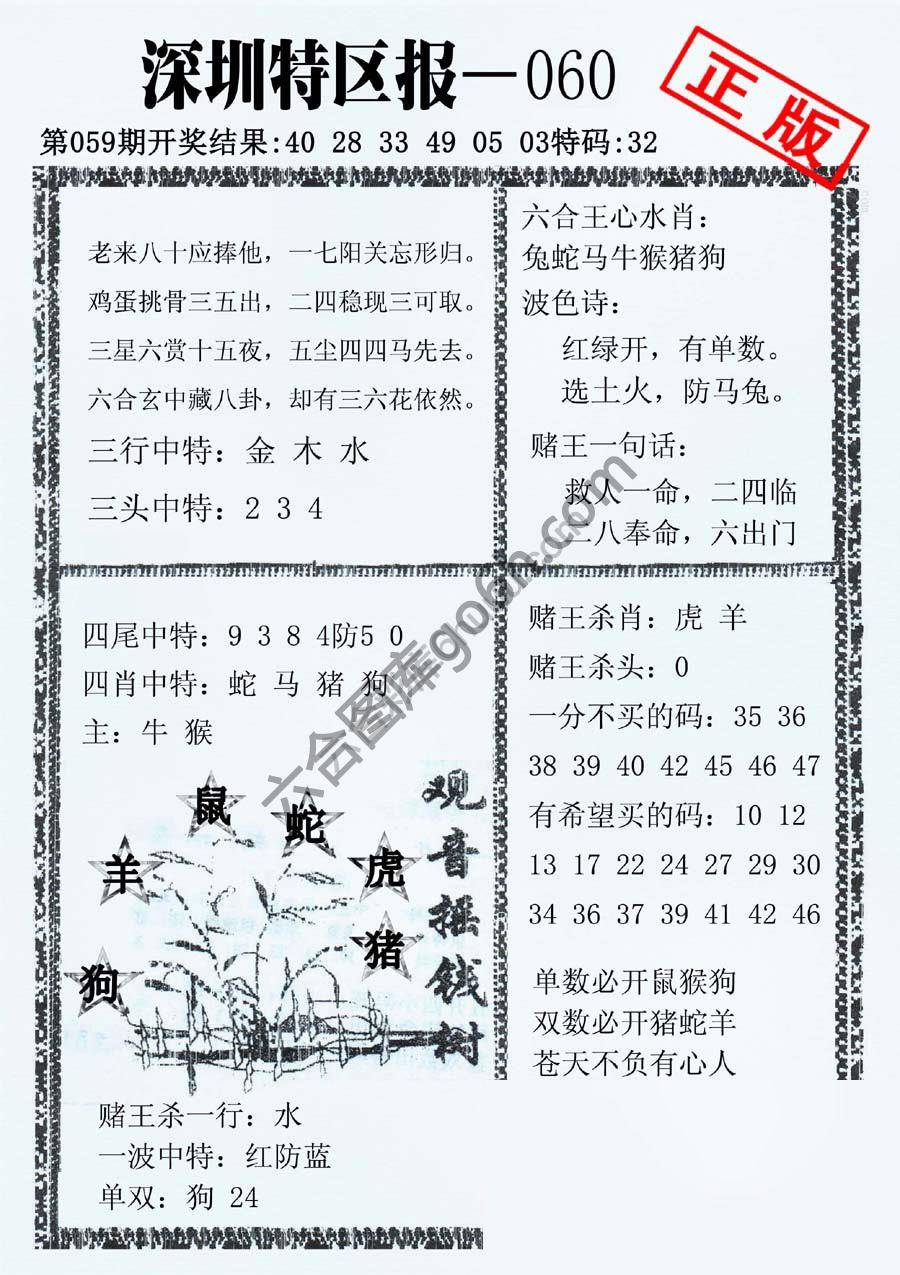 深圳特区报—060
正版
第059期开奖结果:40 28 33 49 05 03特码:32
老来八十应捧他，一七阳关忘形归。
鸡蛋挑骨三五出，二四稳现三可取。
三星六赏十五夜，五尘四四马先去。
六合玄中藏八卦，却有三六花依然。
三行中特：金 木 水
三头中特：2 3 4
六合王心水肖：
兔蛇马牛猴猪狗
波色诗：
红绿开，有单数。
选土火，防马兔。
赌王一句话：
救人一命，二四临
二八奉命，六出门
四尾中特：9 3 8 4防5 0
四肖中特：蛇 马 猪 狗
主：牛 猴
鼠
蛇
羊
虎
猪
狗
观音摇钱树
赌王杀一行：水
一波中特：红防蓝
单双：狗 24
赌王杀肖：虎 羊
赌王杀头：0
一分不买的码：35 36
38 39 40 42 45 46 47
有希望买的码：10 12
13 17 22 24 27 29 30
34 36 37 39 41 42 46
单数必开鼠猴狗
双数必开猪蛇羊
苍天不负有心人
六合图库go6h.com